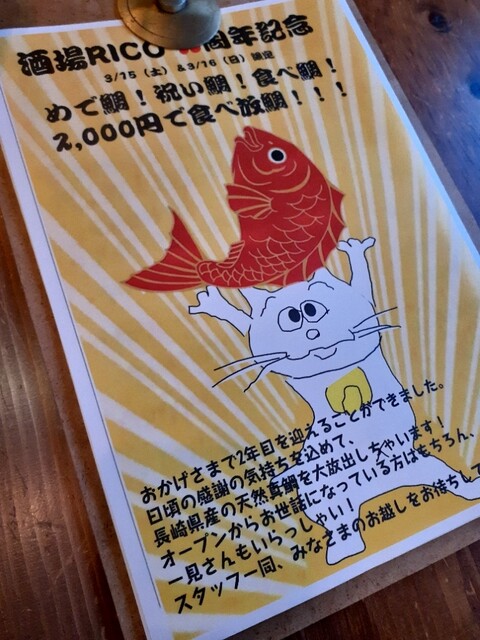 酒場RICO 周年記念
3/15（土）&3/16（日）限定
めで鯛！祝い鯛！食べ鯛！
2,000円で食べ放鯛！！！
おかげさまで2年目を迎えることができました。
日頃の感謝の気持ちを込めて、
長崎県産の天然真鯛を大放出しちゃいます！
オープンからお世話になっている方はもちろん、
一見さんもいらっしゃい！
スタッフ一同、みなさまのお越しをお待ちして